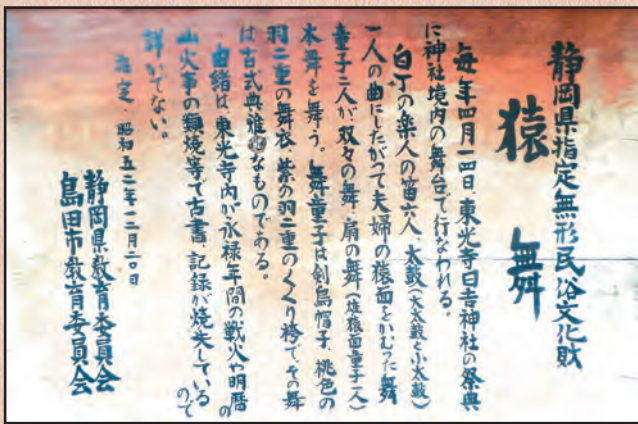 静岡県指定無形民俗文化財
猿 舞
毎年四月一四日、東光寺日吉神社の祭典
に神社境内の舞台で行なわれる。
白丁の楽人の笛六人、太鼓(大太鼓と小太鼓)
一人の曲にしたがって夫婦の猿面をかむった舞
童子二人が、双々の舞、扇の舞(雄猿面童子一人)
本舞を舞う。舞童子は剣烏帽子、桃色の
羽二重の舞衣、紫の羽二重のくくり袴で、その舞
は古式典雅なものである。
由緒は、東光寺内が永禄年間の戦火や明暦の
山火事の類焼等で古書、記録が焼失しているので
詳かでない。
指定 昭和五二年一二月二〇日
静岡県教育委員会
島田市教育委員会